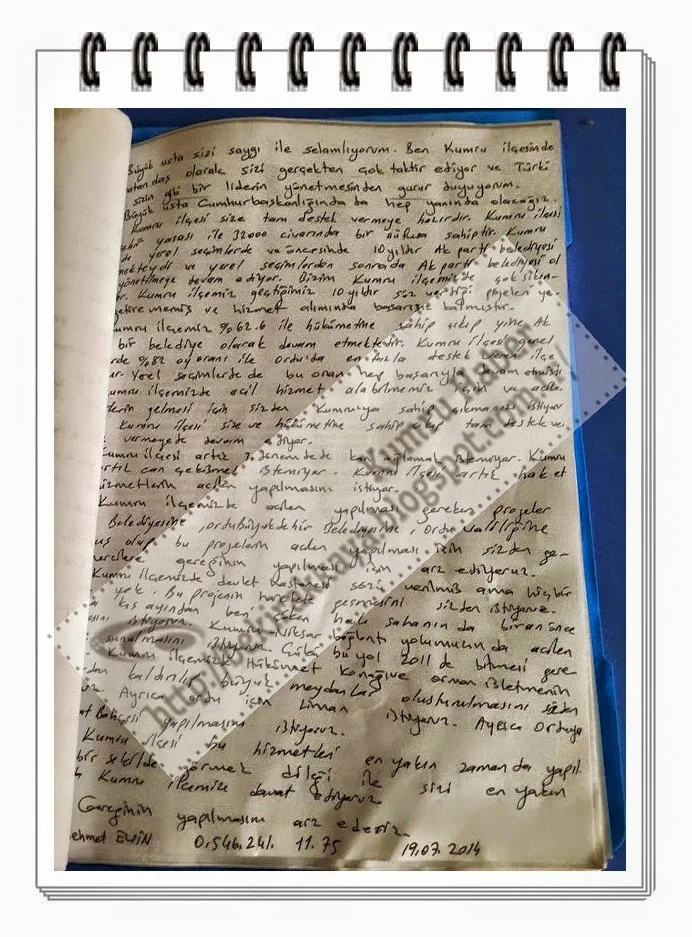 Büyük usta sizi saygı ile selamlıyorum. Ben Kumru ilçesinde
atandaş olarak sizi gerçekten çok taktir ediyor ve Türki
sizin gibi bir liderin yönetmesinden gurur duyuyorum.
Büyük usta Cumhurbaşkanlığında da hep yanında olacağız.
Kumru ilçesi size tam destek vermeye hazırdır. Kumru ilçesi
yasası ile 32000 civarında bir nüfusa sahiptir. Kumru
de yerel seçimlerde ve öncesinde 10 yıldır Ak parti belediyesi
mekteydi ve yerel seçimlerden sonrada Ak parti belediyesi ol
yönetilmeye devam ediyor. Bizim Kumru ilçemizde çok sıkın-
r. Kumru ilçemiz geçtiğimiz 10 yıldır söz verdiği projeleri ye
getirememiş ve hizmet alımında başarısız kalmıştır.
umru ilçemiz %62.6 ile hükümetine sahip çıkıp yine Ak
bir belediye olarak devam etmektedir. Kumru ilçesi genel
rde %82 oy oranı ile Ordu'da en fazla destek veren ilçe
ur. Yerel seçimlerde de bu oranı hep başarıyla devam etmişti
umru ilçemizde acil hizmet alabilmemiz için ve acilen
lerin gelmesi için sizden Kumru'ya sahip çıkmanızı istiyor
Kumru ilçesi size ve hükümetine sahip çıkıp tam destek ve
vermeyede devam ediyor.
umru ilçesi artık 3. dönemde de kan ağlamak istemiyor. Kumru
artık can çekişmek istemiyor. Kumru ilçesi artık hak et
hizmetlerin acilen yapılmasını istiyor.
Kumru ilçemizde acilen yapılması gereken projeler
Belediyesine, ordu Büyükşehir Belediyesine, Ordu Valiliğine
uş olup bu projelerin acilen yapılması için sizden ge-
gereğinin yapılması için arz ediyoruz.
Kumru ilçemizde devlet hastanesi sözü verilmiş ama hiçbir
yok. Bu projenin harekete geçmesini sizden istiyoruz.
kış ayından beri halı sahanın da bir an önce
sunulmasını istiyoruz. Kumru Niksar bağlantı yolumuzun da acilen
istiyoruz. bu yol 2011 de bitmesi gere
Kumru ilçemizde Hükümet Konağı ve orman işletmenin
dan kaldırılıp büyük meydanlar oluşturulmasını sizden
uz. Ayrıca ordu için Liman istiyoruz. Ayrıca Orduya
at Bahçesi yapılmasını istiyoruz.
Kumru ilçesi bu hizmetleri en yakın zamanda yapıl
bir şekilde görmek dileği ile sizi en yakın
Kumru ilçemize davet ediyoruz
Gereğinin yapılmasını arz ederiz.
ehmet 0.546.241. 11.75 19.07.2014